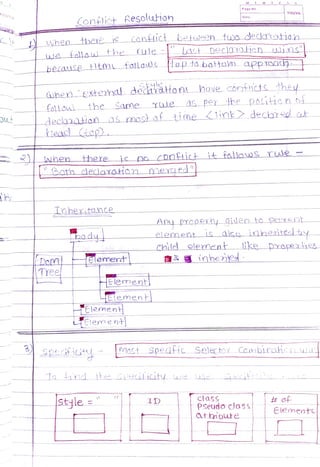 Conflict Resolution
1) When there is conflict between two declaration
we follow the rule - "Last Declaration wins"
because HTML follows Top to bottom approach.
Style
When external declaration have conflicts they
follow the same rule as per the position of
declaration as most of time <link> declared at
head (top).
2) When there is no conflict it follows rule -
"Both declaration merged"
Inheritance
Any property given to parent
element is also inherited by
child element like properties
& inherited.
body
Dom Tree
Element
Element
Element
Element
Element
3) Specificity - most specific Selector Combination
To find the specificity we use
Style = " "
ID
class
Pseudo class
attribute
# of
Elements